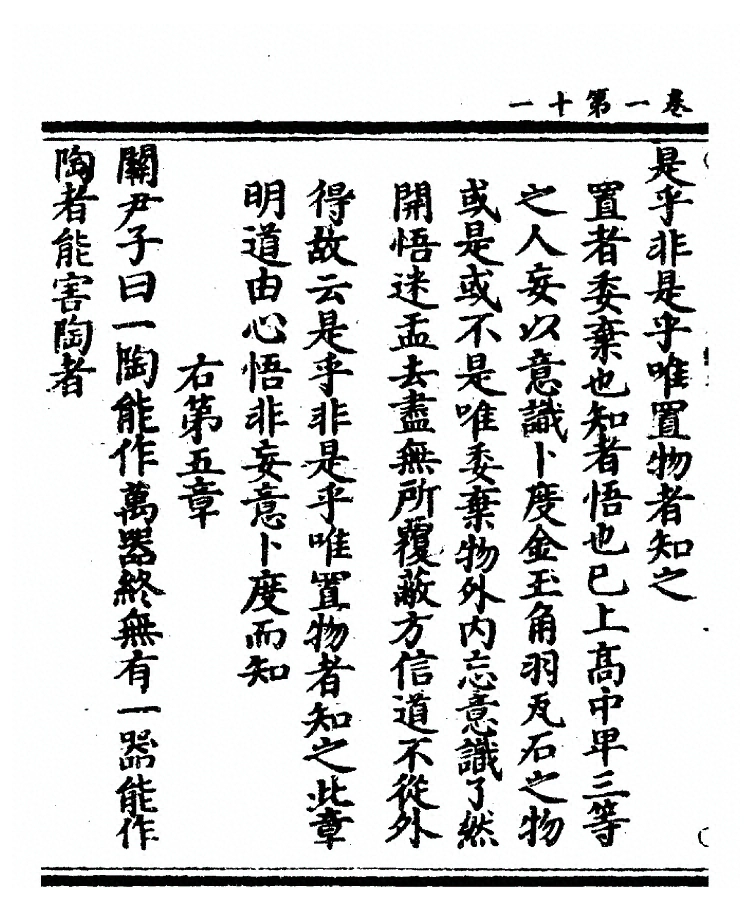 卷一第十一
是乎非是乎唯置物者知之
置者委棄也知者悟也已上高中卑三等
之人妄以意識卜度金玉角羽瓦石之物
或是或不是唯委棄物外內忘意識了然
開悟迷盂去盡無所覆蔽方信道不從外
得故云是乎非是乎唯置物者知之此章
明道由心悟非妄意卜度而知
右第五章
關尹子曰一陶能作萬器終無有一器能作
陶者能害陶者